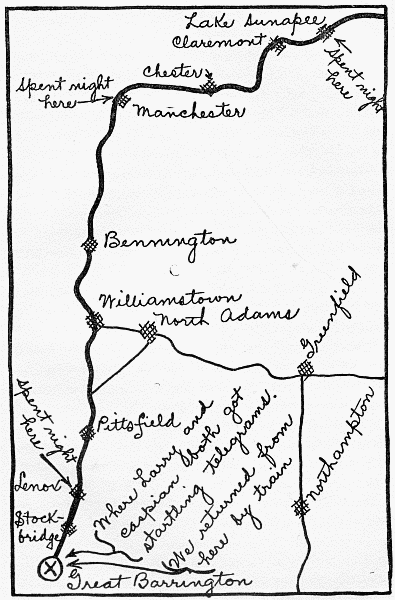 Lake Sunapee
Claremont
Spent night
here
Chester
Spent night
here
Manchester
Bennington
Williamstown
North Adams
Greenfield
Spent night
here
Pittsfield
Where Larry and
caspian both got
startling telegrams.
We returned from
here by train
Northampton
Lenox
Stock-
bridge
Great Barrington